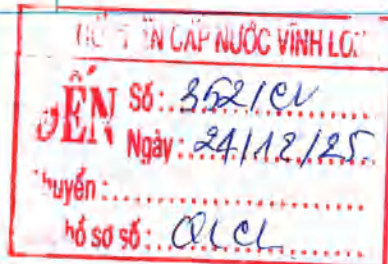 CẤP NƯỚC VĨNH LO
ĐẾN
Số: 352/CV
Ngày: 24/12/25
huyển:
hồ sơ số: QLCL